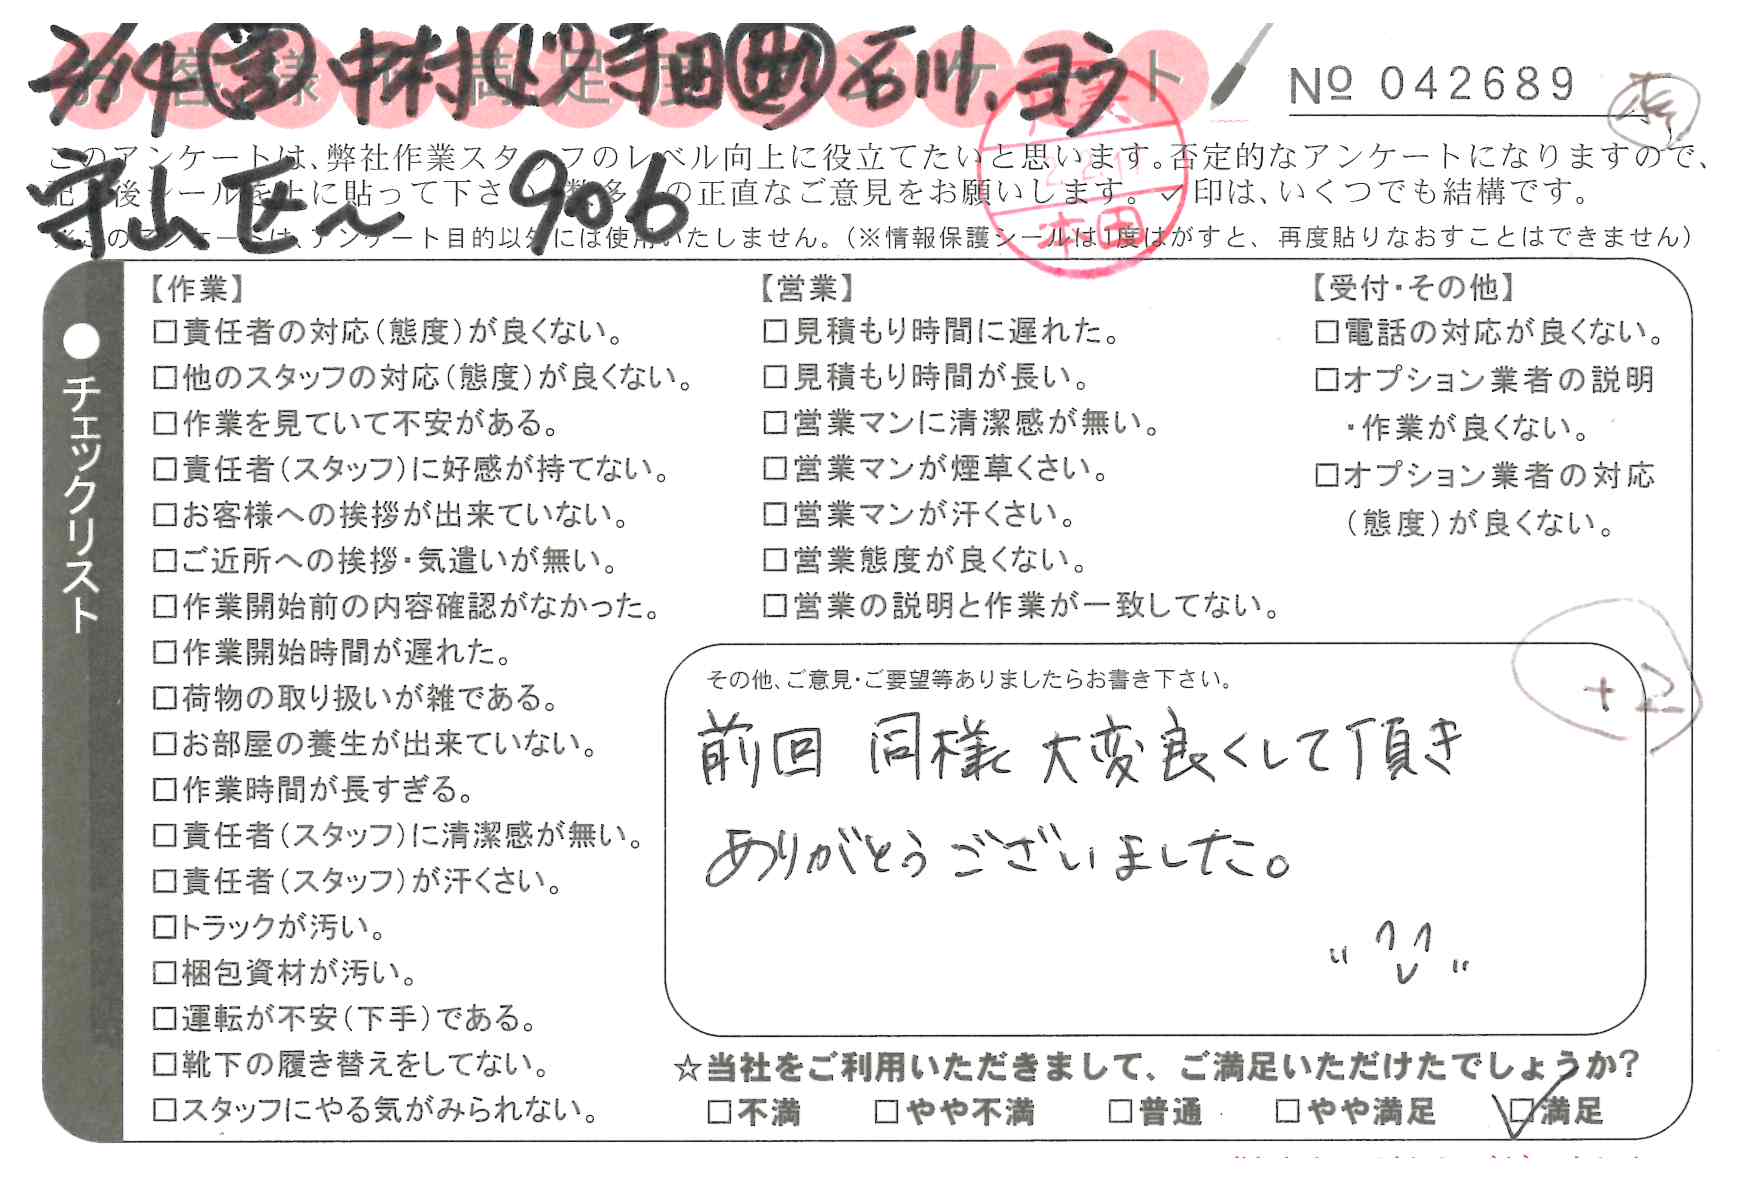 2/14 営 中村 ド 寺田 助 石川、ヨウ
お客様 満足度 アンケート
No 042689
このアンケートは、弊社作業スタッフのレベル向上に役立てたいと思います。否定的なアンケートになりますので、
記 後シールを上に貼って下さい 数多 の正直なご意見をお願いします。✓印は、いくつでも結構です。
守山区〜 906
※このアンケートは、アンケート目的以外には使用いたしません。(※情報保護シールは1度はがすと、再度貼りなおすことはできません)
本田
●チェックリスト
【作業】
□責任者の対応(態度)が良くない。
□他のスタッフの対応(態度)が良くない。
□作業を見ていて不安がある。
□責任者(スタッフ)に好感が持てない。
□お客様への挨拶が出来ていない。
□ご近所への挨拶・気遣いが無い。
□作業開始前の内容確認がなかった。
□作業開始時間が遅れた。
□荷物の取り扱いが雑である。
□お部屋の養生が出来ていない。
□作業時間が長すぎる。
□責任者(スタッフ)に清潔感が無い。
□責任者(スタッフ)が汗くさい。
□トラックが汚い。
□梱包資材が汚い。
□運転が不安(下手)である。
□靴下の履き替えをしてない。
□スタッフにやる気がみられない。
【営業】
□見積もり時間に遅れた。
□見積もり時間が長い。
□営業マンに清潔感が無い。
□営業マンが煙草くさい。
□営業マンが汗くさい。
□営業態度が良くない。
□営業の説明と作業が一致してない。
【受付・その他】
□電話の対応が良くない。
□オプション業者の説明
・作業が良くない。
□オプション業者の対応
(態度)が良くない。
+2
その他、ご意見・ご要望等ありましたらお書き下さい。
前回 同様 大変良くして頂き
ありがとうございました。
☆当社をご利用いただきまして、ご満足いただけたでしょうか?
□不満 □やや不満 □普通 □やや満足 ☑満足